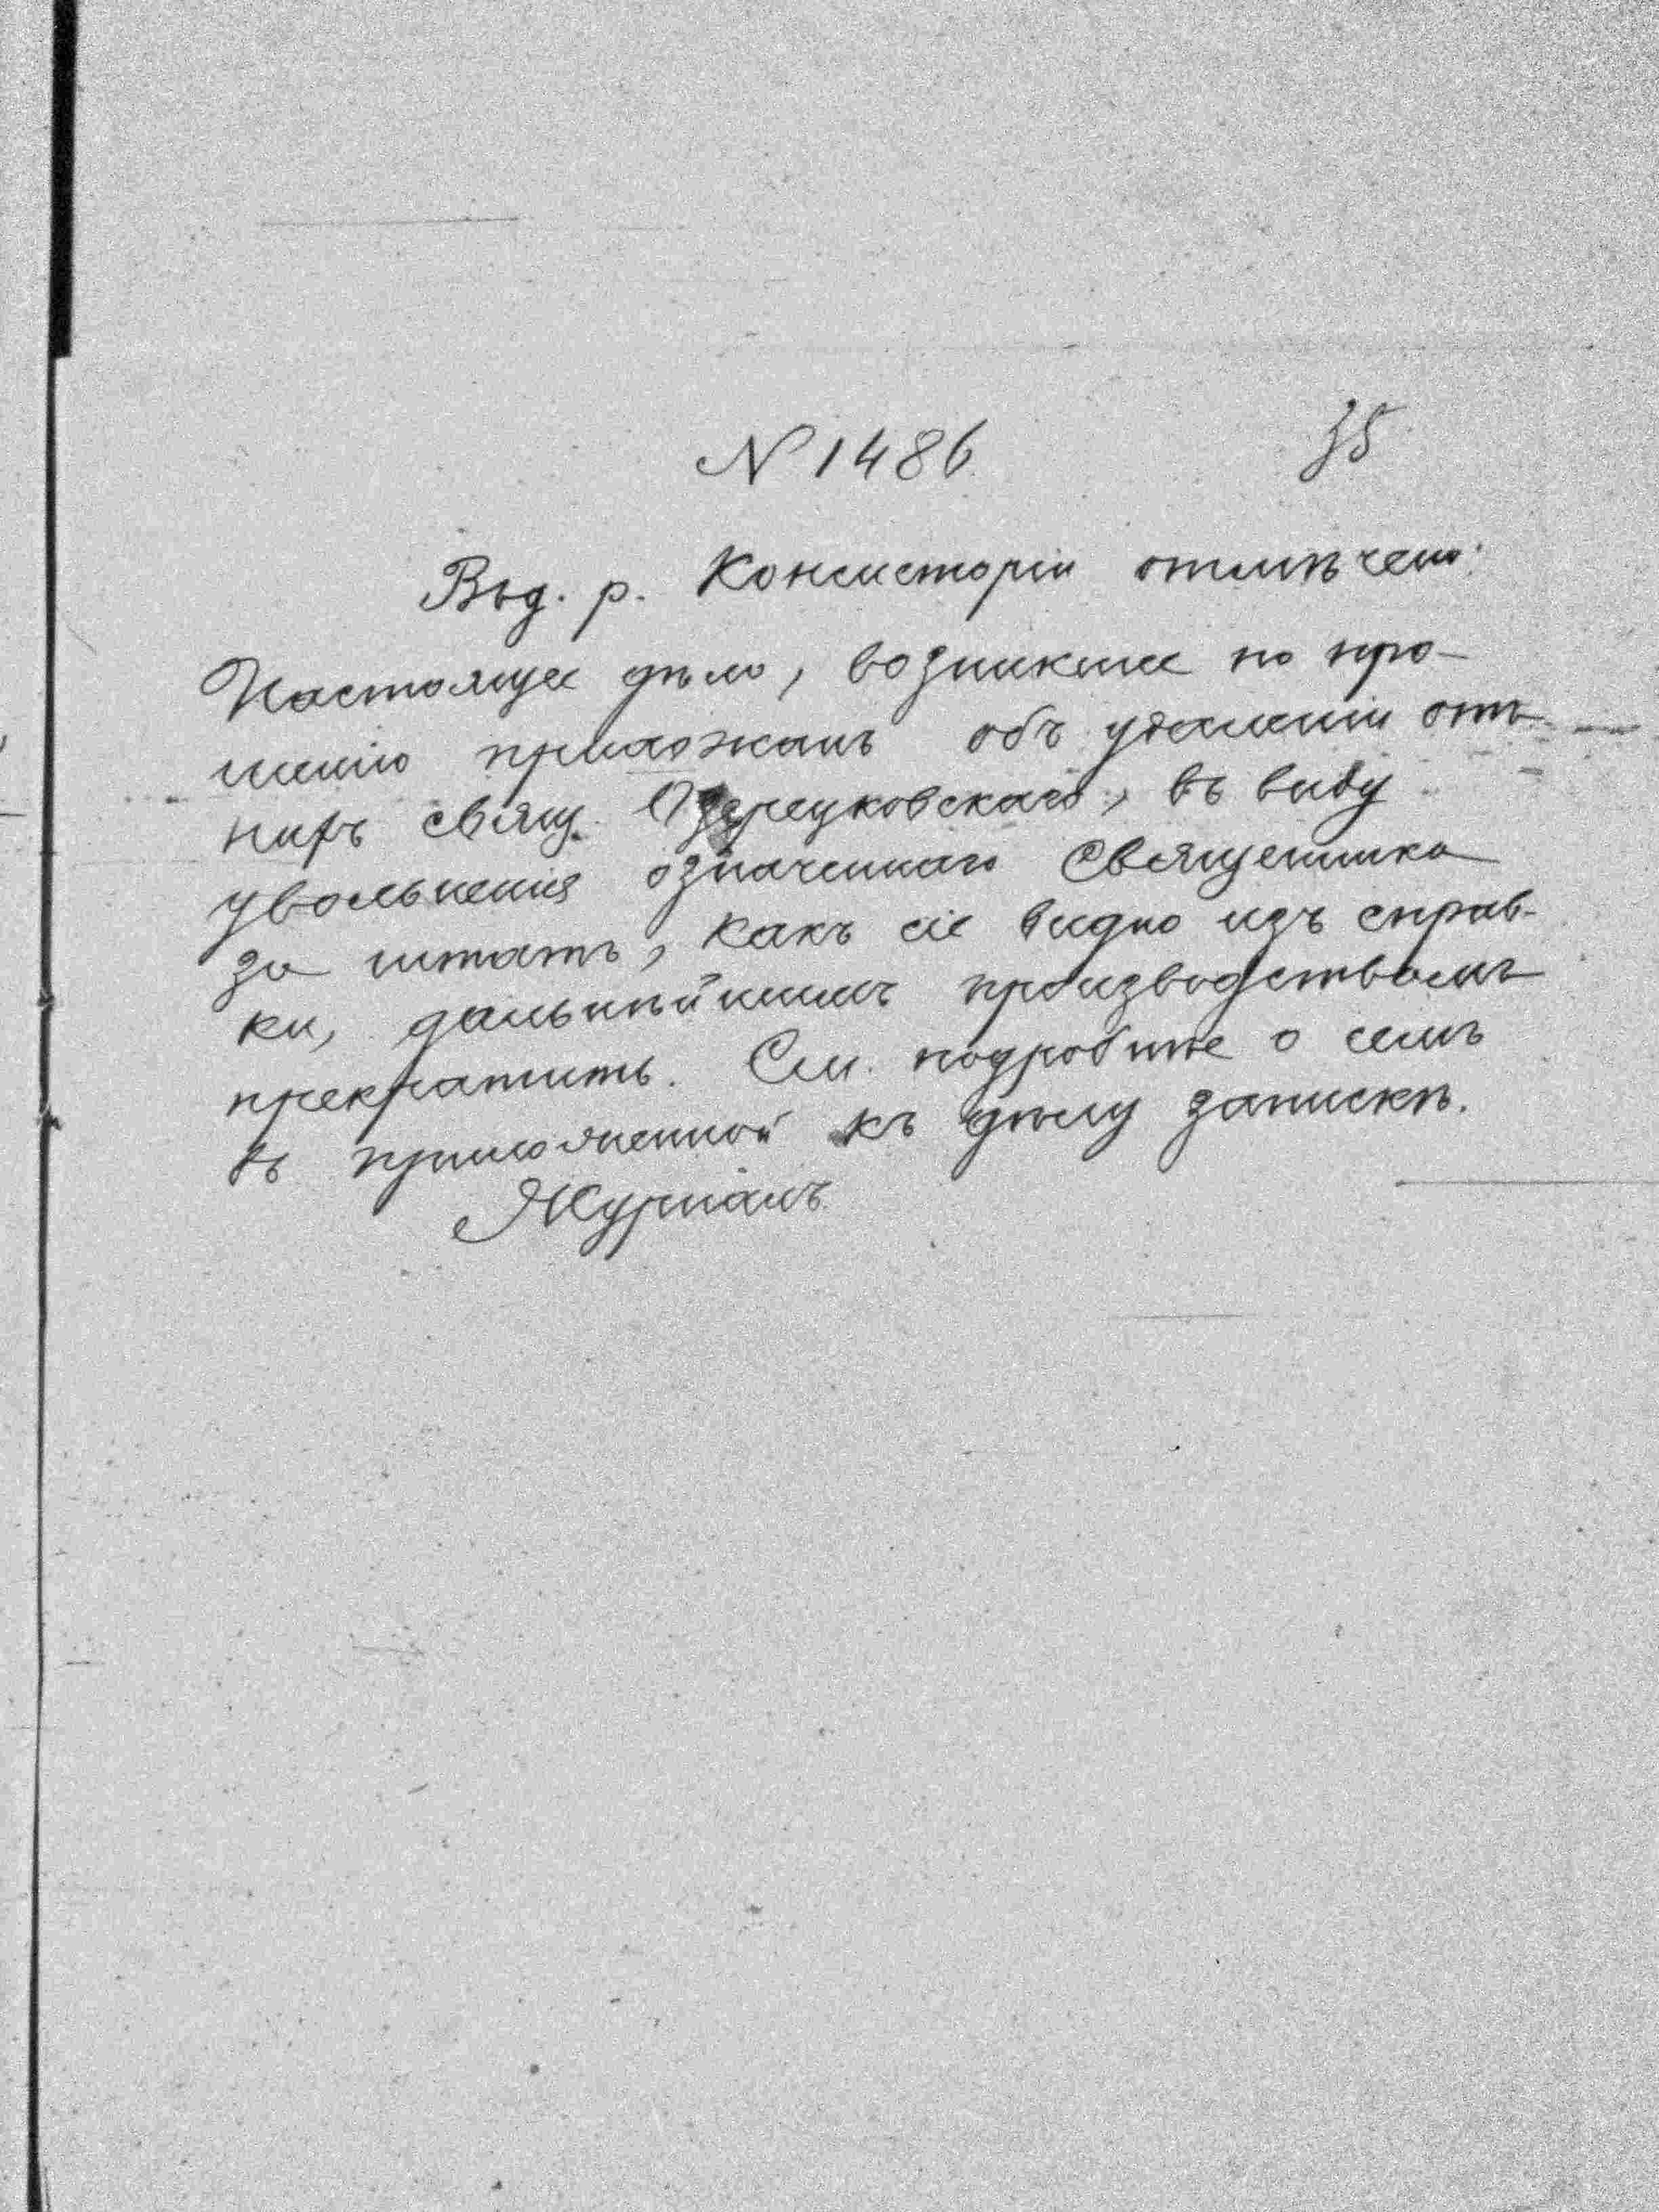 N 1486
35
Вѣд. р. Консисторіи отмѣчено:
Настоящее дѣло, возникшее по про-
шенію прихожанъ объ удаленіи отъ
нихъ свящ. Озерецковскаго, въ виду
увольненія означеннаго священника
за штатъ, какъ сіе видно изъ справ-
ки, дальнѣйшимъ производствомъ
прекратить. См. подробнѣе о семъ
въ приложенной къ дѣлу запискѣ.
Журналъ